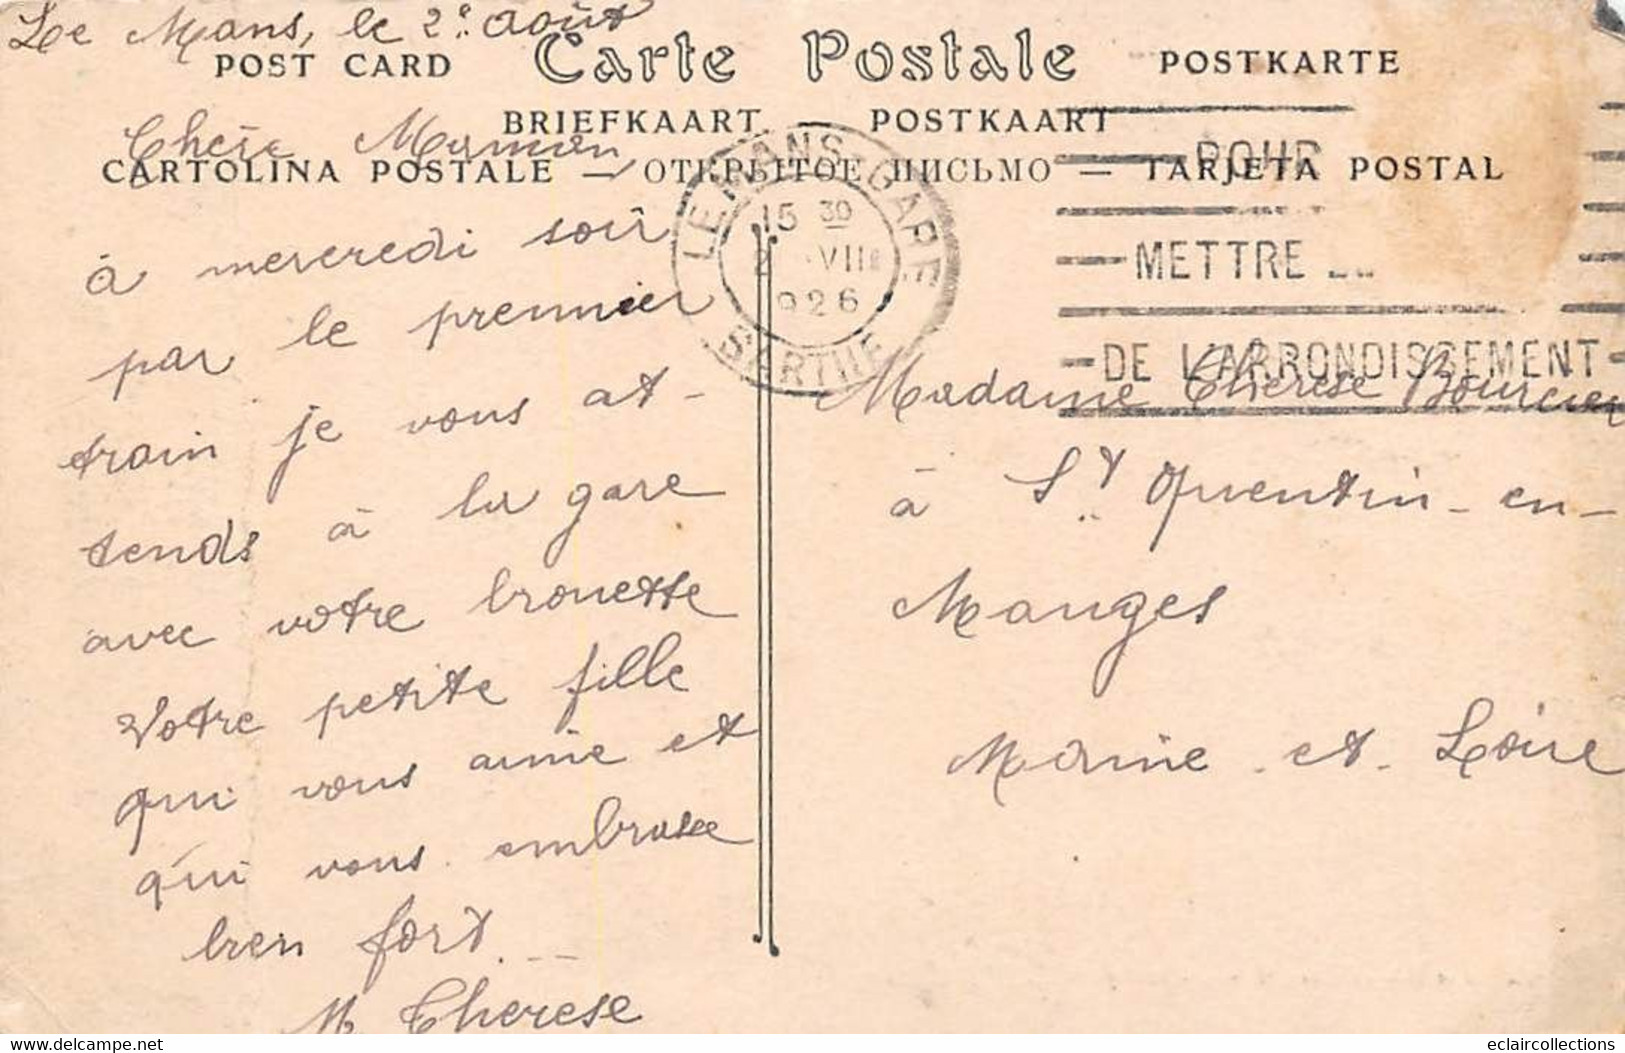 Le Mans, le 2 août
POST CARD Carte Postale POSTKARTE
BRIEFKAART — POSTKAART
CARTOLINA POSTALE — ОТКРЫТОЕ ПИСЬМО — TARJETA POSTAL
Chère Maman,
à mercredi soir
par le premier
train je vous at-
tends à la gare
avec votre brouette
Votre petite fille
qui vous aime et
qui vous embrasse
bien fort...
M Therese
LE MANS-GARE
15 30
2 VIII
1926
SARTHE
POUR
METTRE
DE L'ARRONDISSEMENT
Madame Therese Bourcier
à St Quentin-en-
Mauges
Maine-et-Loire
eclaircollections